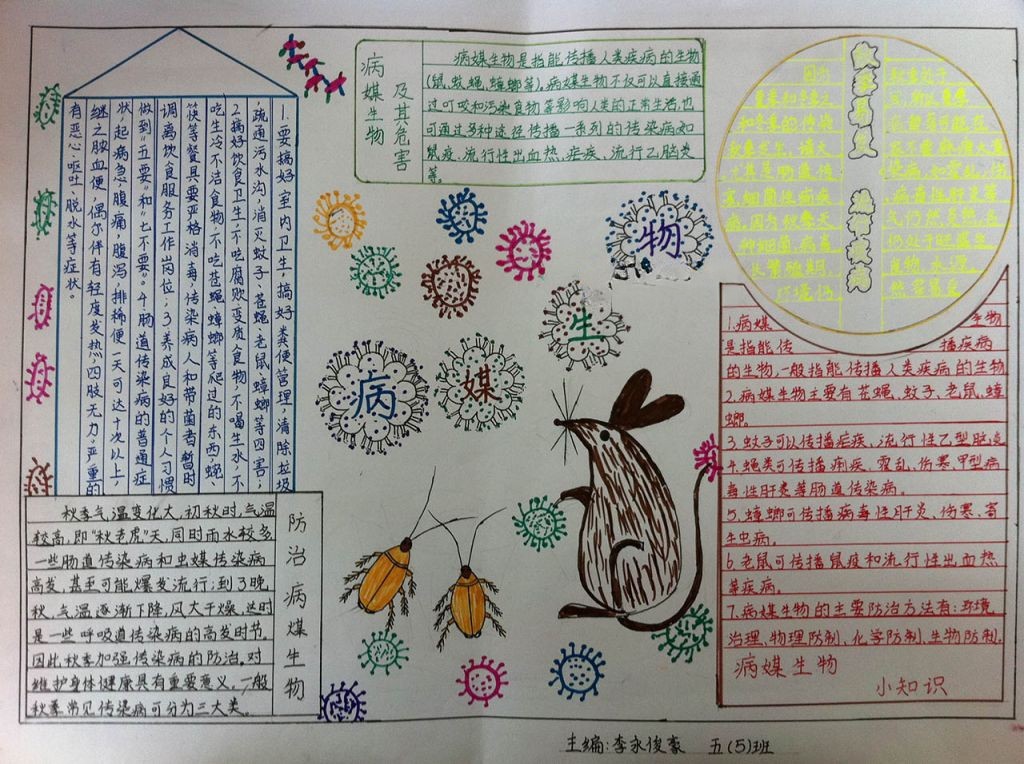 病媒生物
及其危害
病媒生物是指能传播人类疾病的生物
(鼠、蚊、蝇、蟑螂等)。病媒生物不仅可以直接通
过叮咬和污染食物等影响人类的正常生活,也
可通过多种途径传播一系列的传染病,如
鼠疫、流行性出血热、疟疾、流行乙脑炎
等。
1.要搞好室内卫生,搞好粪便管理,清除垃圾,
疏通污水沟,消灭蚊子、苍蝇、老鼠、蟑螂等四害,
2搞好饮食卫生,不吃腐败、变质食物,不喝生水,不
吃生冷不洁食物,不吃苍蝇蟑螂等爬过的东西,碗
筷等餐具要严格消毒,传染病人和带菌者暂时
调离饮食服务工作岗位;3养成良好的个人习惯
做到“五要”和“七不要”。4.肠道传染病的普通症
状,起病急,腹痛,腹泻,排稀便一天可达十次以上,
继之脓血便,偶尔伴有轻度发热,四肢无力,严重的
有恶心,呕吐,脱水等症状。
病
媒
生
物
秋季气温变化大,初秋时,气温
较高,即“秋老虎”天,同时雨水较多
一些肠道传染病和虫媒传染病
高发,甚至可能爆发流行;到了晚
秋,气温逐渐下降,风大干燥,这时
是一些呼吸道传染病的高发时节。
因此秋季加强传染病的防治,对
维护身体健康具有重要意义,一般
秋季常见传染病可分为三大类。
防治病煤生物
秋季易发
1.病媒
生物
是指能传
播疾病
的生物,一般指能传播人类疾病的生物
2.病媒生物主要有苍蝇、蚊子、老鼠、蟑
螂。
3.蚊子可以传播疟疾、流行性乙型脑炎
4.蝇类可传播痢疾、霍乱、伤寒、甲型病
毒性肝炎等肠道传染病。
5.蟑螂可传播病毒性肝炎、伤寒、寄
生虫病。
6老鼠可传播鼠疫和流行性出血热
等疾病。
7.病媒生物的主要防治方法有:环境
治理、物理防制、化学防制、生物防制.
病媒生物
小知识
主编:李永俊豪 五(5)班